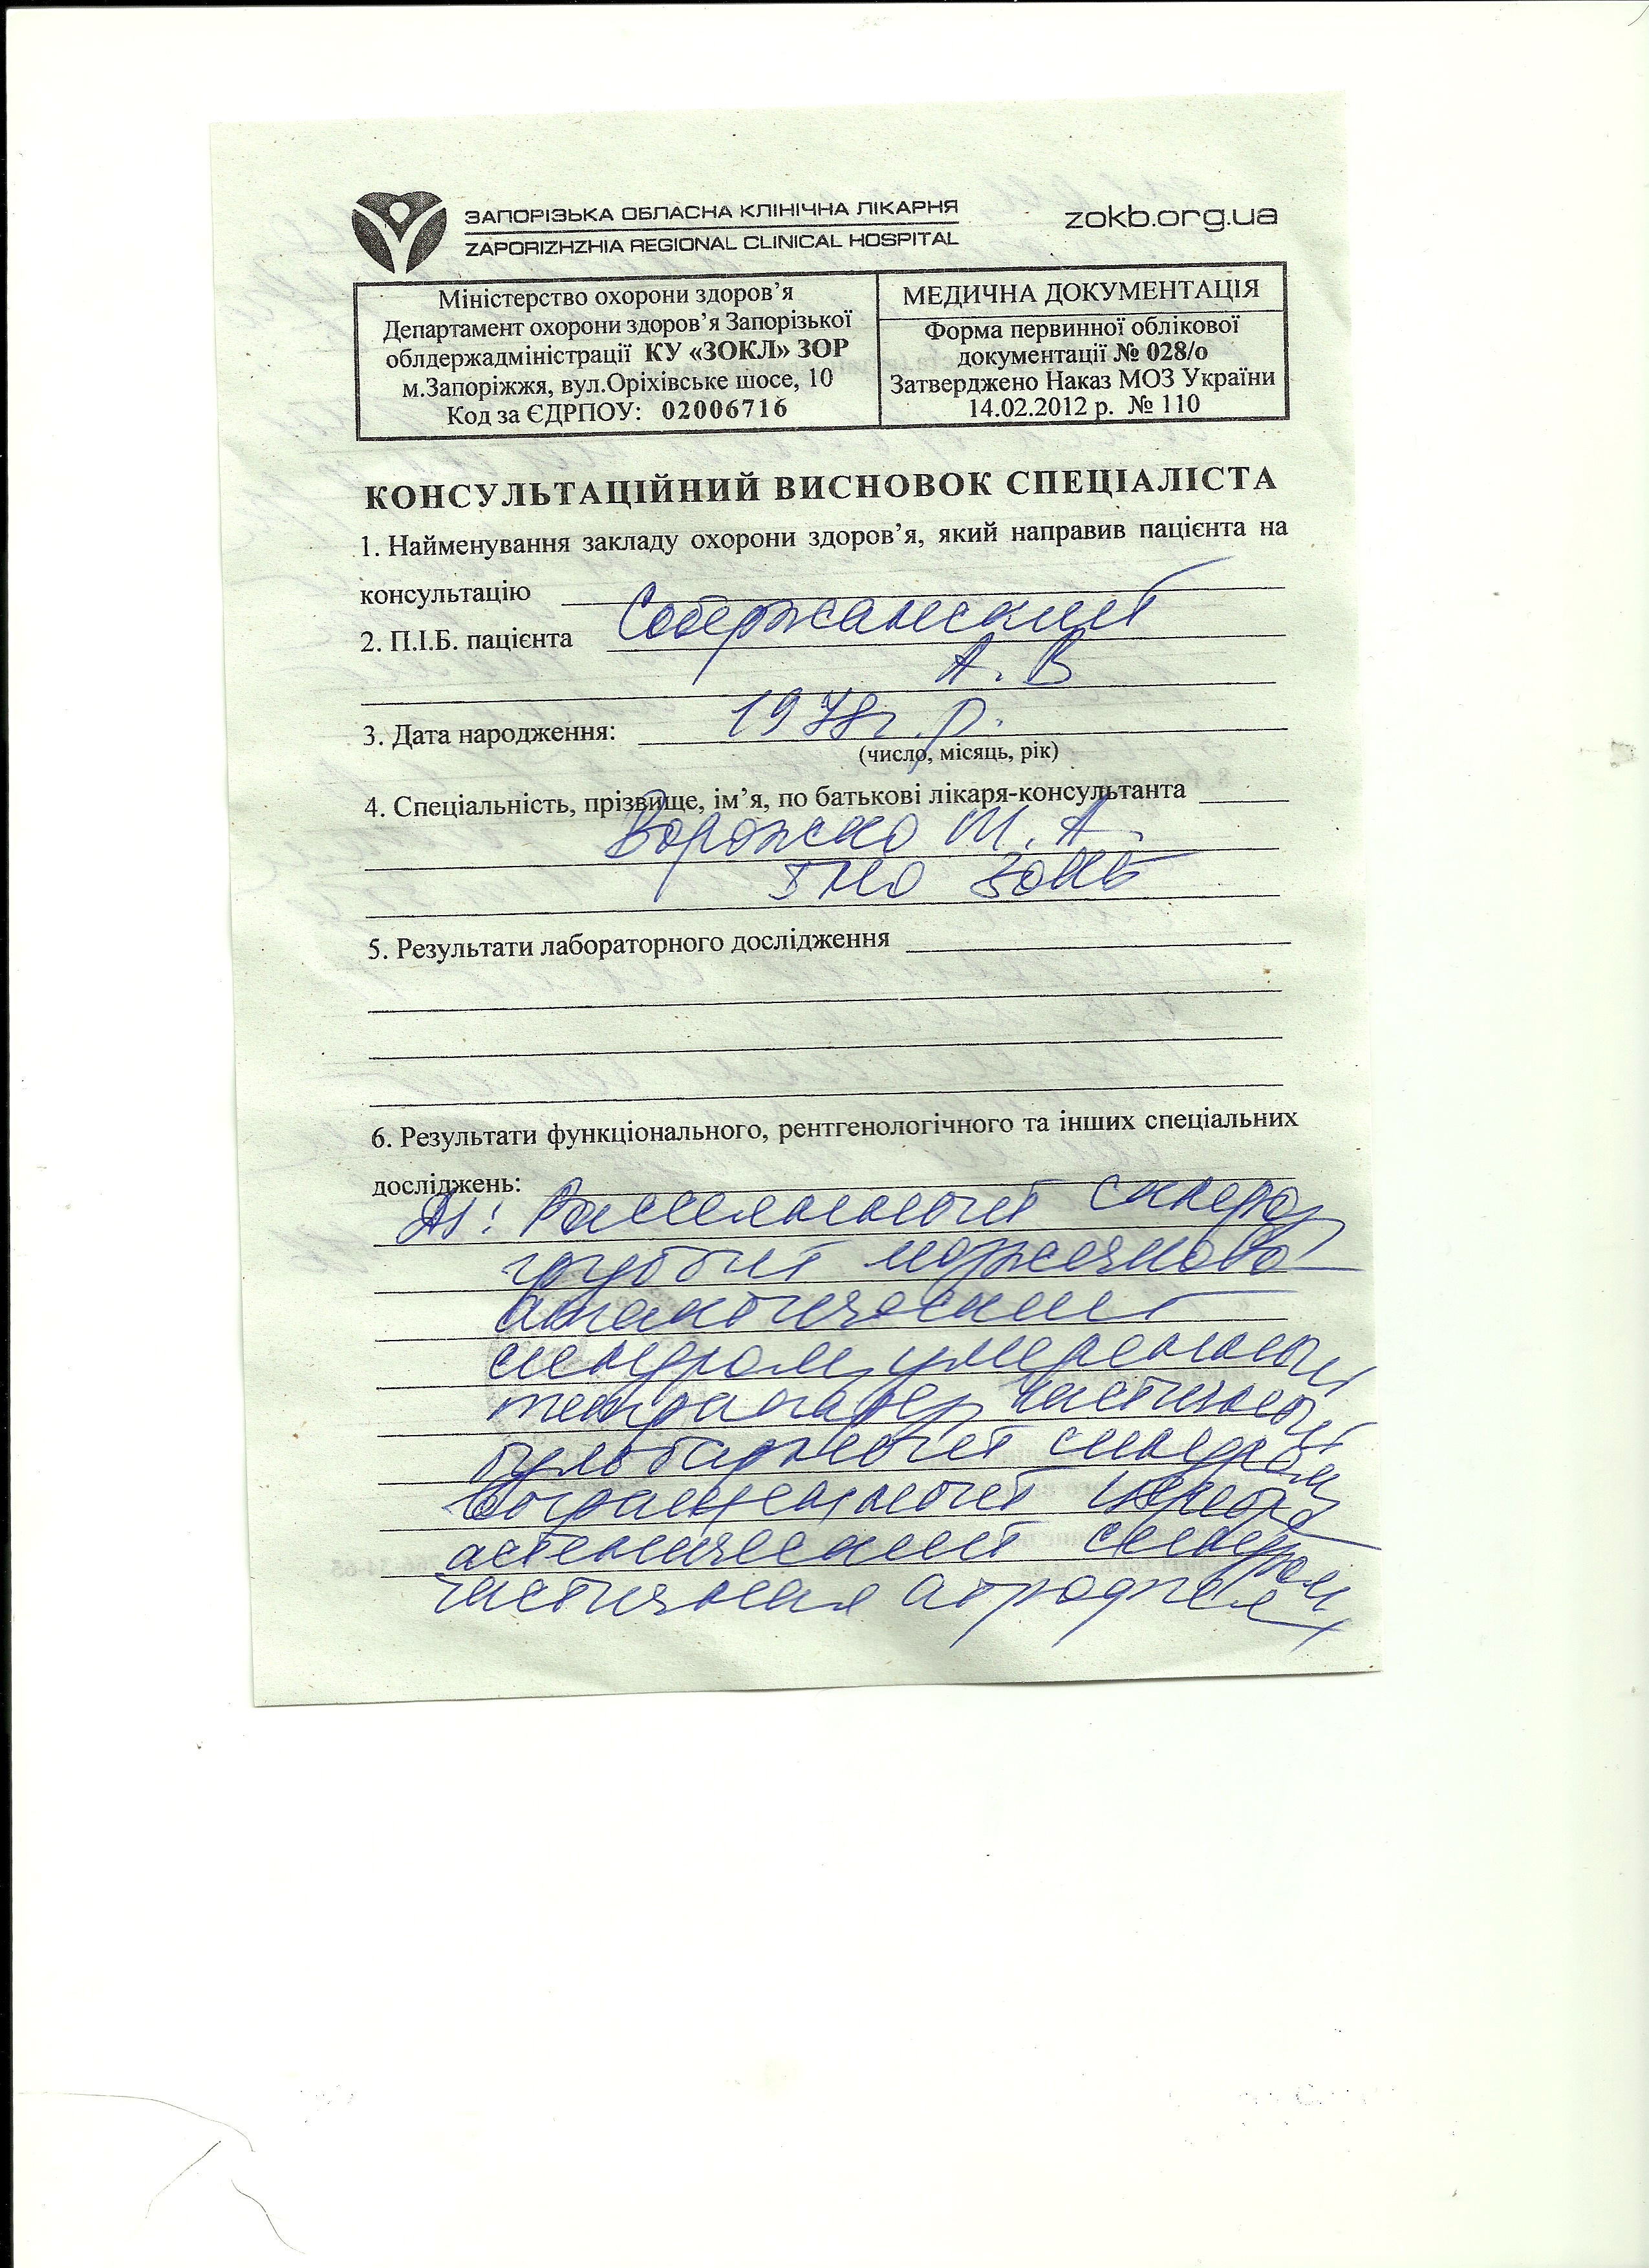 ЗАПОРІЗЬКА ОБЛАСНА КЛІНІЧНА ЛІКАРНЯ
ZAPORIZHZHIA REGIONAL CLINICAL HOSPITAL
zokb.org.ua
Міністерство охорони здоров’я
Департамент охорони здоров’я Запорізької
облдержадміністрації КУ «ЗОКЛ» ЗОР
м.Запоріжжя, вул.Оріхівське шосе, 10
Код за ЄДРПОУ: 02006716
МЕДИЧНА ДОКУМЕНТАЦІЯ
Форма первинної облікової
документації № 028/о
Затверджено Наказ МОЗ України
14.02.2012 р. № 110
КОНСУЛЬТАЦІЙНИЙ ВИСНОВОК СПЕЦІАЛІСТА
1. Найменування закладу охорони здоров’я, який направив пацієнта на
консультацію
2. П.І.Б. пацієнта
А. В
3. Дата народження: 1978г. р.
(число, місяць, рік)
4. Спеціальність, прізвище, ім’я, по батькові лікаря-консультанта
5. Результати лабораторного дослідження
6. Результати функціонального, рентгенологічного та інших спеціальних
досліджень:
Ds: Рассеянный склероз
грубый мозжечково-
атактический
синдром, умеренный
тетрапарез, частичный
бульбарный синдром
выраженный церебро-
астенический синдром,
частичная атрофия